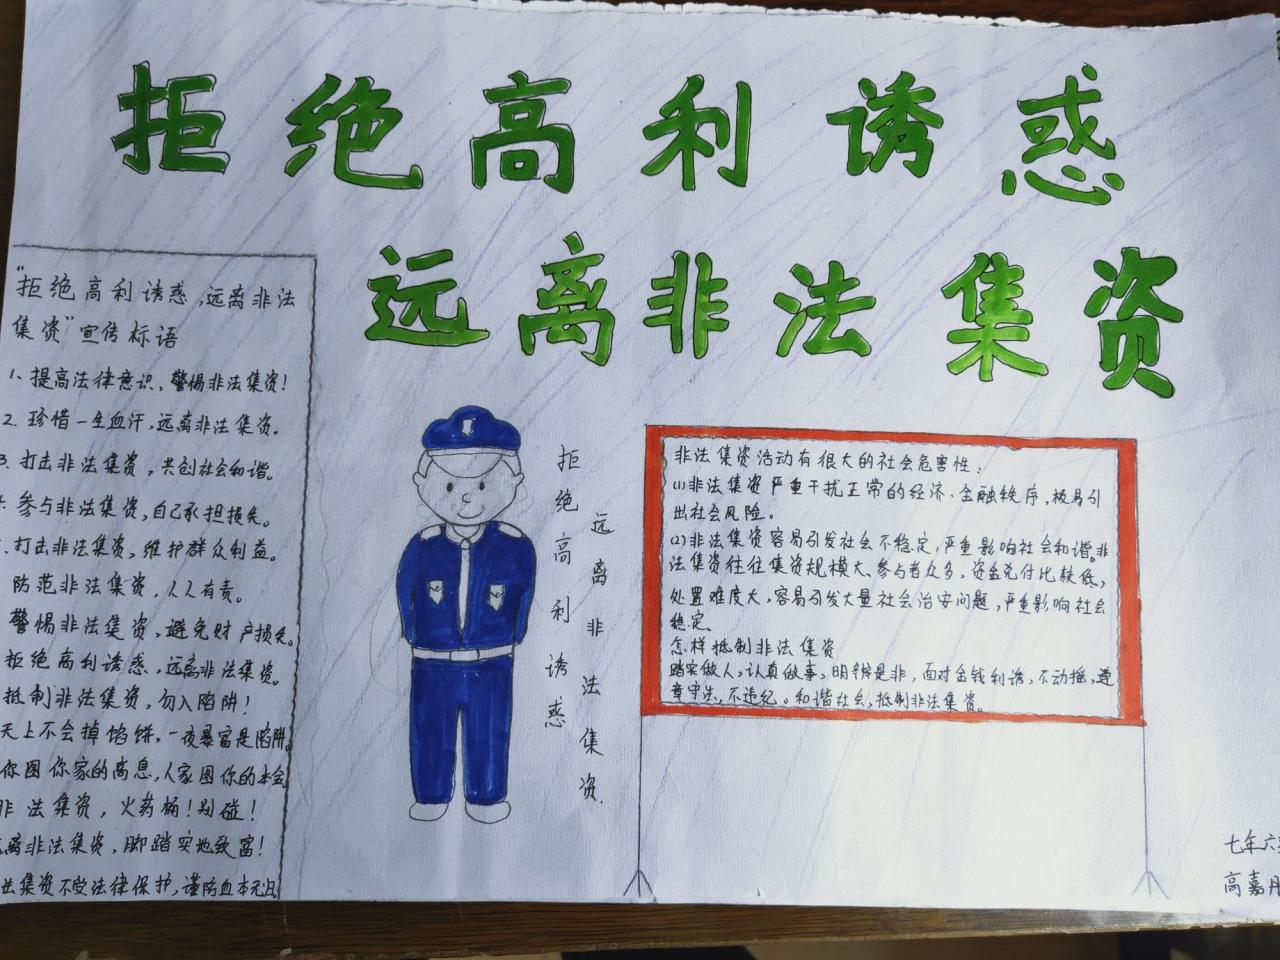 拒绝高利诱惑
远离非法集资
"拒绝高利诱惑,远离非法
集资"宣传标语
1、提高法律意识、警惕非法集资!
2. 珍惜一生血汗,远离非法集资.
3. 打击非法集资,共创社会和谐。
参与非法集资,自己承担损失。
打击非法集资,维护群众利益。
防范非法集资,人人有责。
警惕非法集资,避免财产损失。
拒绝高利诱惑,远离非法集资。
抵制非法集资,勿入陷阱!
天上不会掉馅饼,一夜暴富是陷阱
你图你家的高息,人家图你的本金
非法集资,火药桶!别碰!
离非法集资,脚踏实地致富!
法集资不受法律保护,谨防血本无归
拒绝高利诱惑
远离非法集资.
非法集资活动有很大的社会危害性:
(1)非法集资严重干扰正常的经济、金融秩序,极易引
出社会风险。
(2)非法集资容易引发社会不稳定,严重影响社会和谐。非
法集资往往集资规模大、参与者众多,资金兑付比较低,
处置难度大,容易引发大量社会治安问题,严重影响社会
稳定.
怎样抵制非法集资
踏实做人,认真做事,明辨是非,面对金钱利诱,不动摇,遵
章守法,不违纪。和谐社会,抵制非法集资。
七年六
高嘉